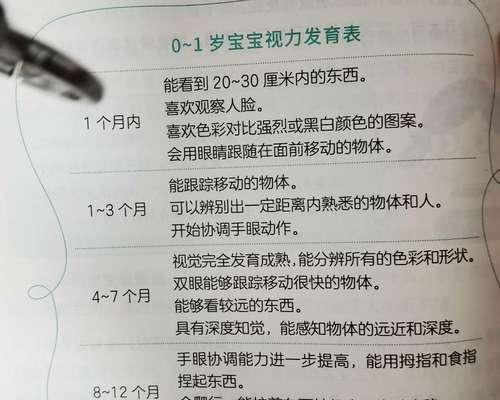 0~1岁宝宝视力发育表
能看到20~30厘米内的东西。
喜欢观察人脸。
1个月内
喜欢色彩对比强烈或黑白颜色的图案。
会用眼睛跟随在面前移动的物体。
能跟踪移动的物体。
1~3个月
可以辨别出一定距离内熟悉的物体和人。
开始协调手眼动作。
视觉完全发育成熟,能分辨所有的色彩和形状。
双眼能够跟踪移动很快的物体。
4~7个月
能够看较远的东西。
具有深度知觉，能感知物体的远近和深度。
手眼协调能力进一步提高，能用拇指和食指
捏起东西。
8~12个月